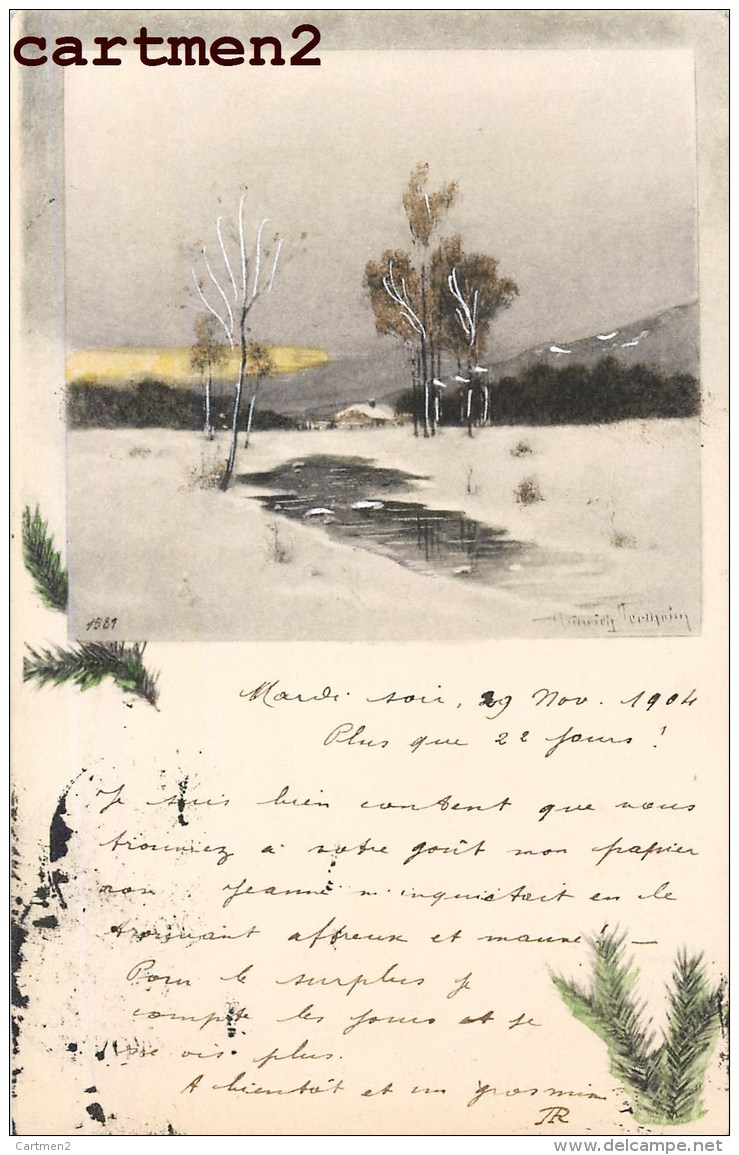 cartmen2
1581
Mardi soir, 29 Nov. 1904
Plus que 22 jours !
Je suis bien content que vous
trouviez à votre goût mon papier
Jeanne m'inquiétait en le
trouvant affreux et mauve ! —
Pour le surplus je
compte les jours et je
ne vis plus.
A bientôt et un gros
Cartmen2